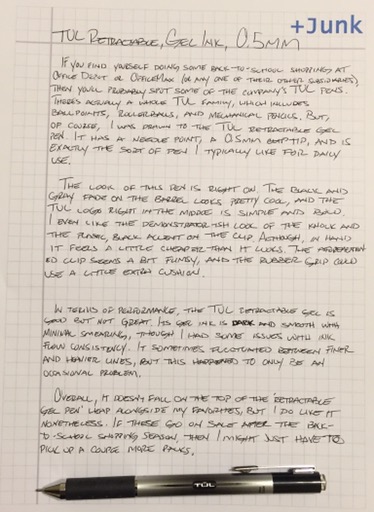 +Junk
TUL RETRACTABLE, GEL INK, 0.5MM
IF YOU FIND YOURSELF DOING SOME BACK-TO-SCHOOL SHOPPING AT
OFFICE DEPOT OR OFFICEMAX (OR ANY ONE OF THEIR OTHER SUBSIDIARIES),
THEN YOU'LL PROBABLY SPOT SOME OF THE COMPANY'S TUL PENS.
THERE'S ACTUALLY A WHOLE TUL FAMILY, WHICH INCLUDES
BALLPOINTS, ROLLERBALLS, AND MECHANICAL PENCILS. BUT,
OF COURSE, I WAS DRAWN TO THE TUL RETRACTABLE GEL
PEN. IT HAS A NEEDLE POINT, A 0.5MM TIP, AND IS
EXACTLY THE SORT OF PEN I TYPICALLY LIKE FOR DAILY
USE.
THE LOOK OF THIS PEN IS RIGHT ON. THE BLACK AND
GRAY FADE ON THE BARREL LOOKS PRETTY COOL, AND THE
TUL LOGO RIGHT IN THE MIDDLE IS SIMPLE AND BOLD.
I EVEN LIKE THE DEMONSTRATOR-ISH LOOK OF THE KNOCK AND
THE PLASTIC, BLACK ACCENT ON THE CLIP. ALTHOUGH, IN HAND
IT FEELS A LITTLE CHEAPER THAN IT LOOKS. THE
ED CLIP SEEMS A BIT FLIMSY, AND THE RUBBER GRIP COULD
USE A LITTLE EXTRA CUSHION.
IN TERMS OF PERFORMANCE, THE TUL RETRACTABLE GEL IS
GOOD BUT NOT GREAT. ITS GEL INK IS DARK AND SMOOTH WITH
MINIMAL SMEARING, THOUGH I HAD SOME ISSUES WITH INK
FLOW CONSISTENCY. IT SOMETIMES FLUCTUATED BETWEEN FINER
AND HEAVIER LINES, BUT THIS HAPPENED TO ONLY BE AN
OCCASIONAL PROBLEM.
OVERALL, IT DOESN'T FALL ON THE TOP OF THE 'RETRACTABLE
GEL PEN' HEAP ALONGSIDE MY FAVORITES, BUT I DO LIKE IT
NONETHELESS. IF THESE GO ON SALE AFTER THE BACK-
TO-SCHOOL SHOPPING SEASON, THEN I MIGHT JUST HAVE TO
PICK UP A COUPLE MORE PACKS.
TUL